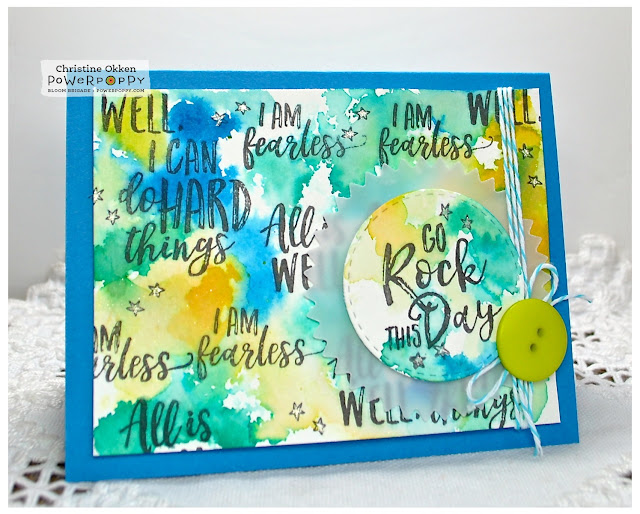 Christine Okken
POWERPOPPY
BLOOM BRIGADE | POWERPOPPY.COM
WELL.
I CAN
do HARD
things
I AM
fearless
I AM
fearless
WELL.
All
WE
GO
Rock
THIS Day
AM
fearless
I AM
fearless
All is
WELL.
things